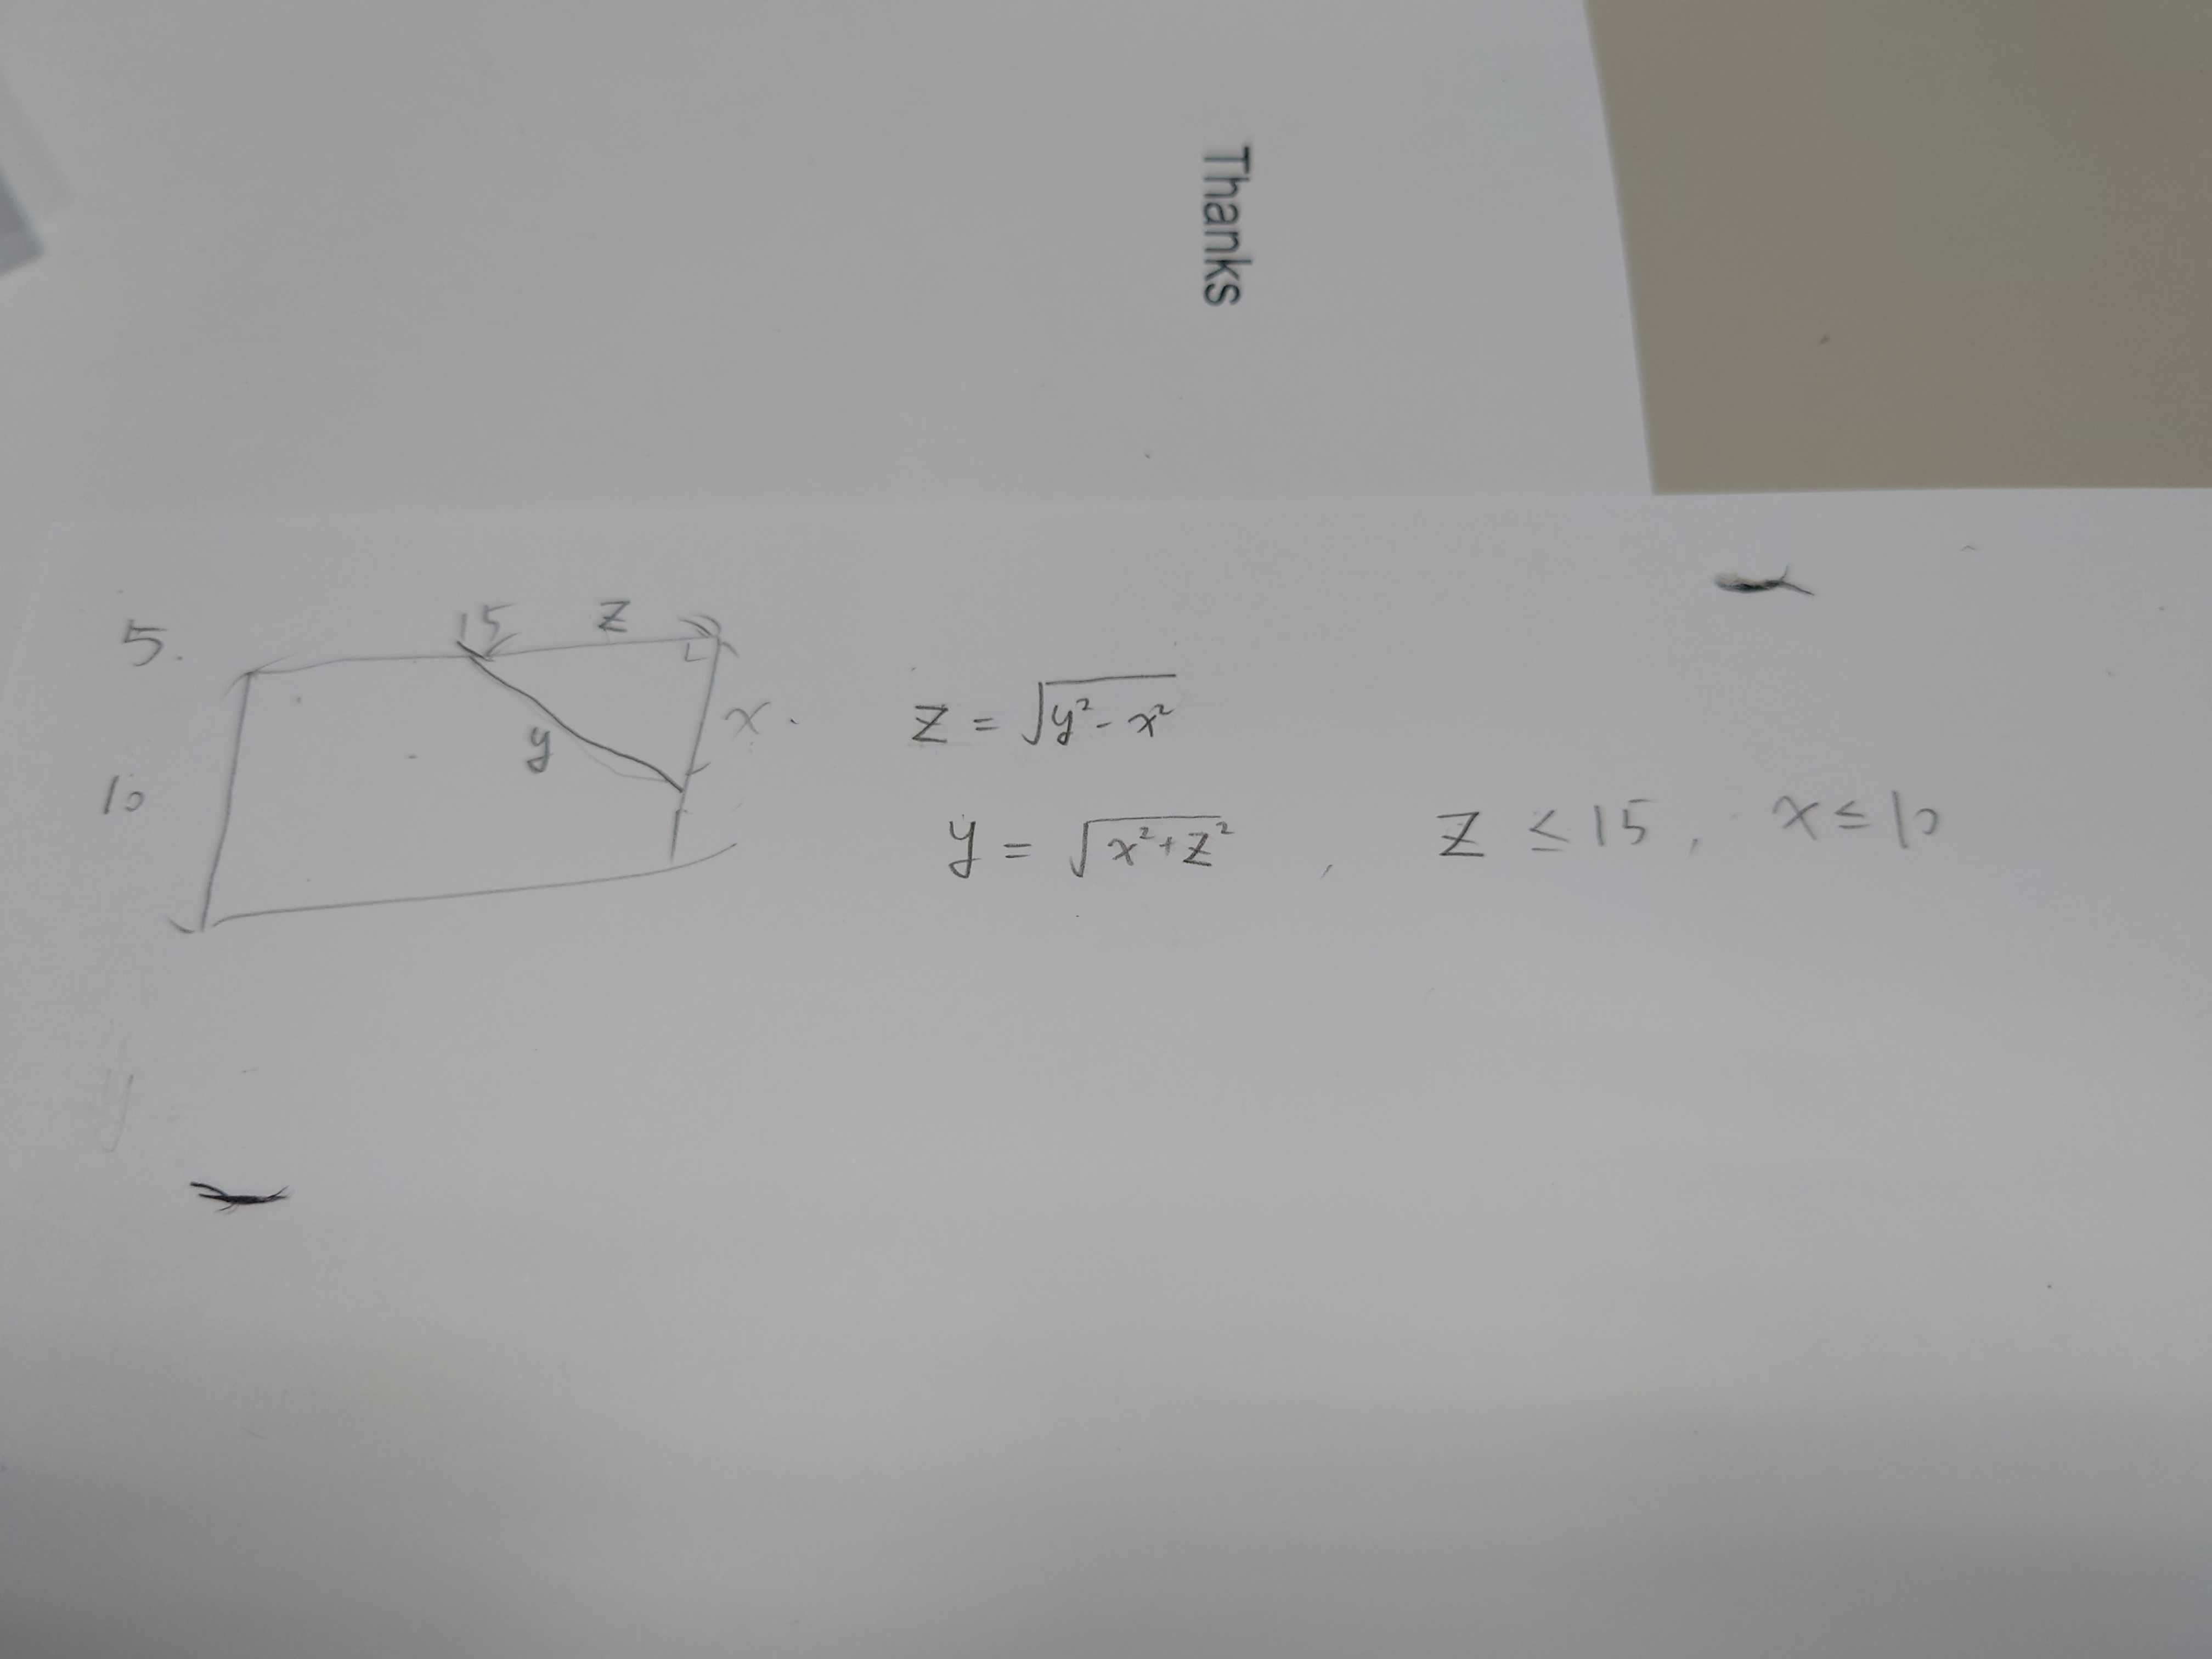 Thanks
5.
15 z
x.
y
10
z = √(y² - x²)
y = √(x² + z²) , z ≤ 15, x ≤ 10
y